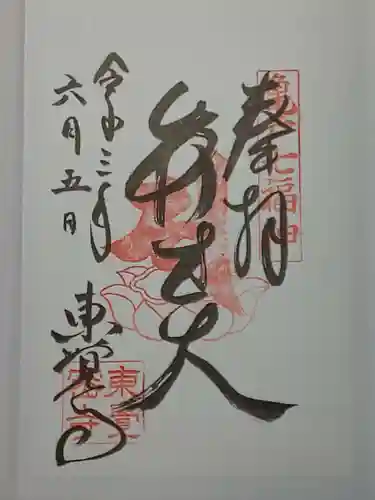 奉拝
亀戸七福神
弁才天
令和三年
六月五日
東覚寺
東覺